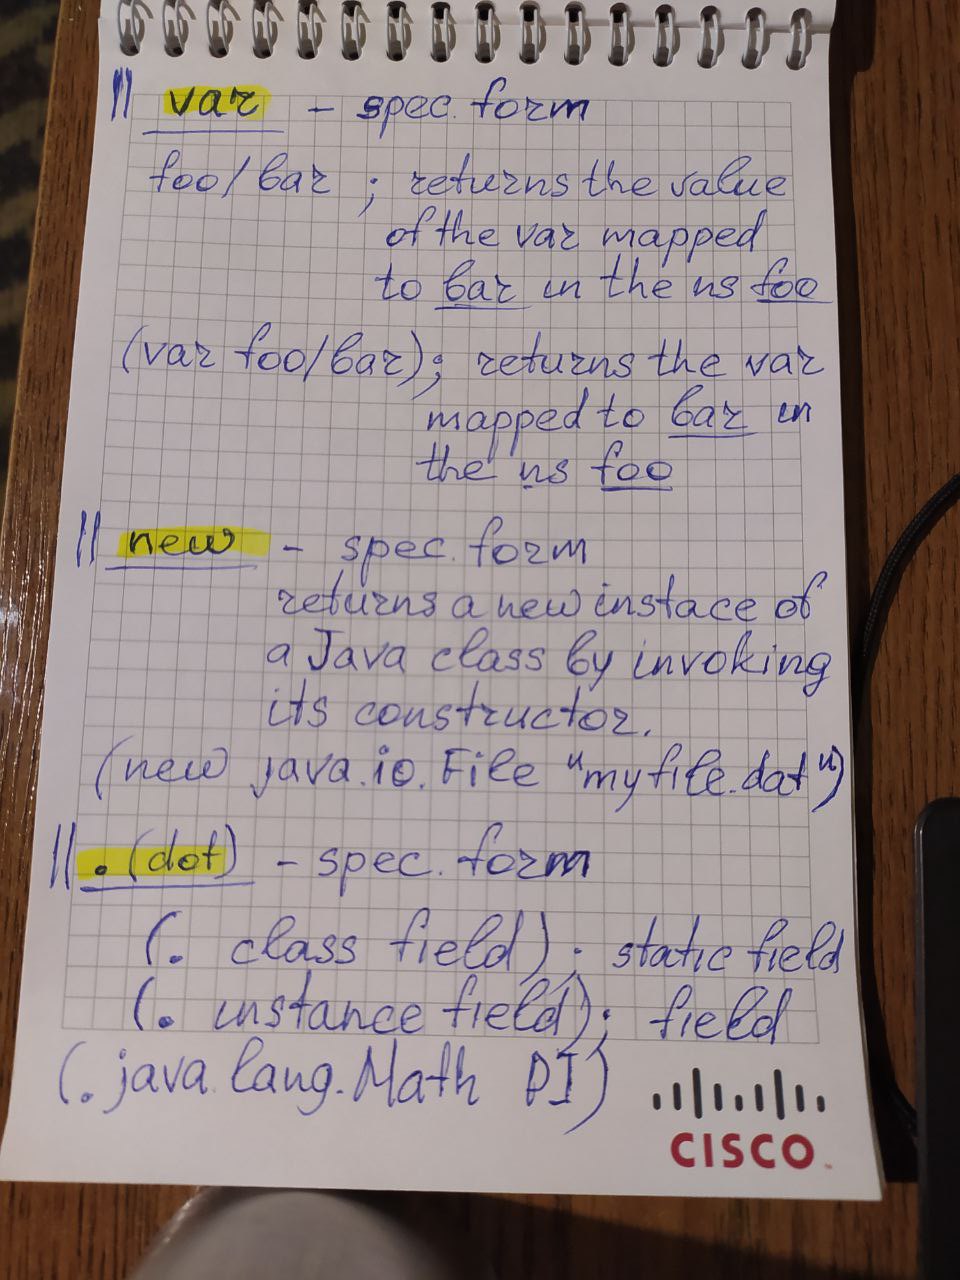 || var - spec. form
foo/bar ; returns the value
of the var mapped
to bar in the ns foo
(var foo/bar); returns the var
mapped to bar in
the ns foo
|| new - spec. form
returns a new instace of
a Java class by invoking
its constructor.
(new java.io.File "myfile.dat")
|| . (dot) - spec. form
(. class field) ; static field
(. instance field); field
(. java.lang.Math PI)
CISCO